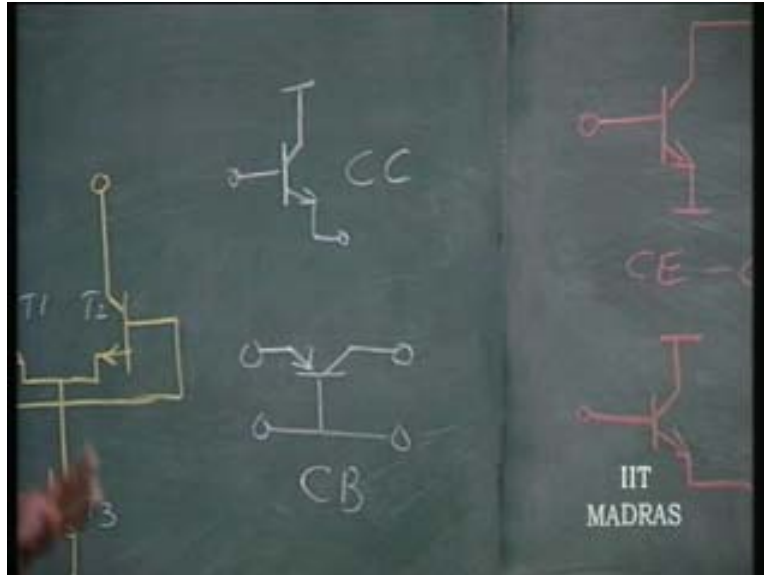 CC
T1 T2
CE -
CB
IIT
MADRAS